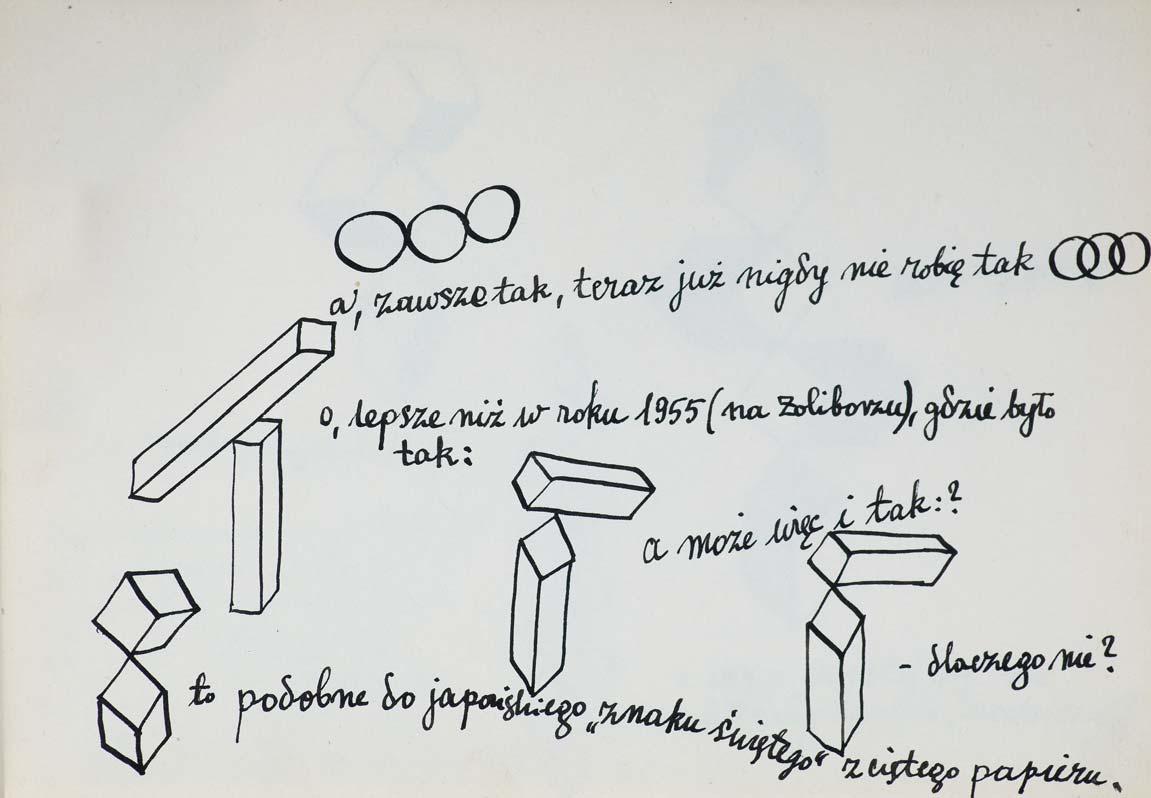 a, zawsze tak, teraz już nigdy nie robię tak
o, lepsze niż w roku 1955 (na Żoliborzu), gdzie było
tak:
a może więc i tak:?
- dlaczego nie?
to podobne do japońskiego „znaku świętego” z ciętego papieru.